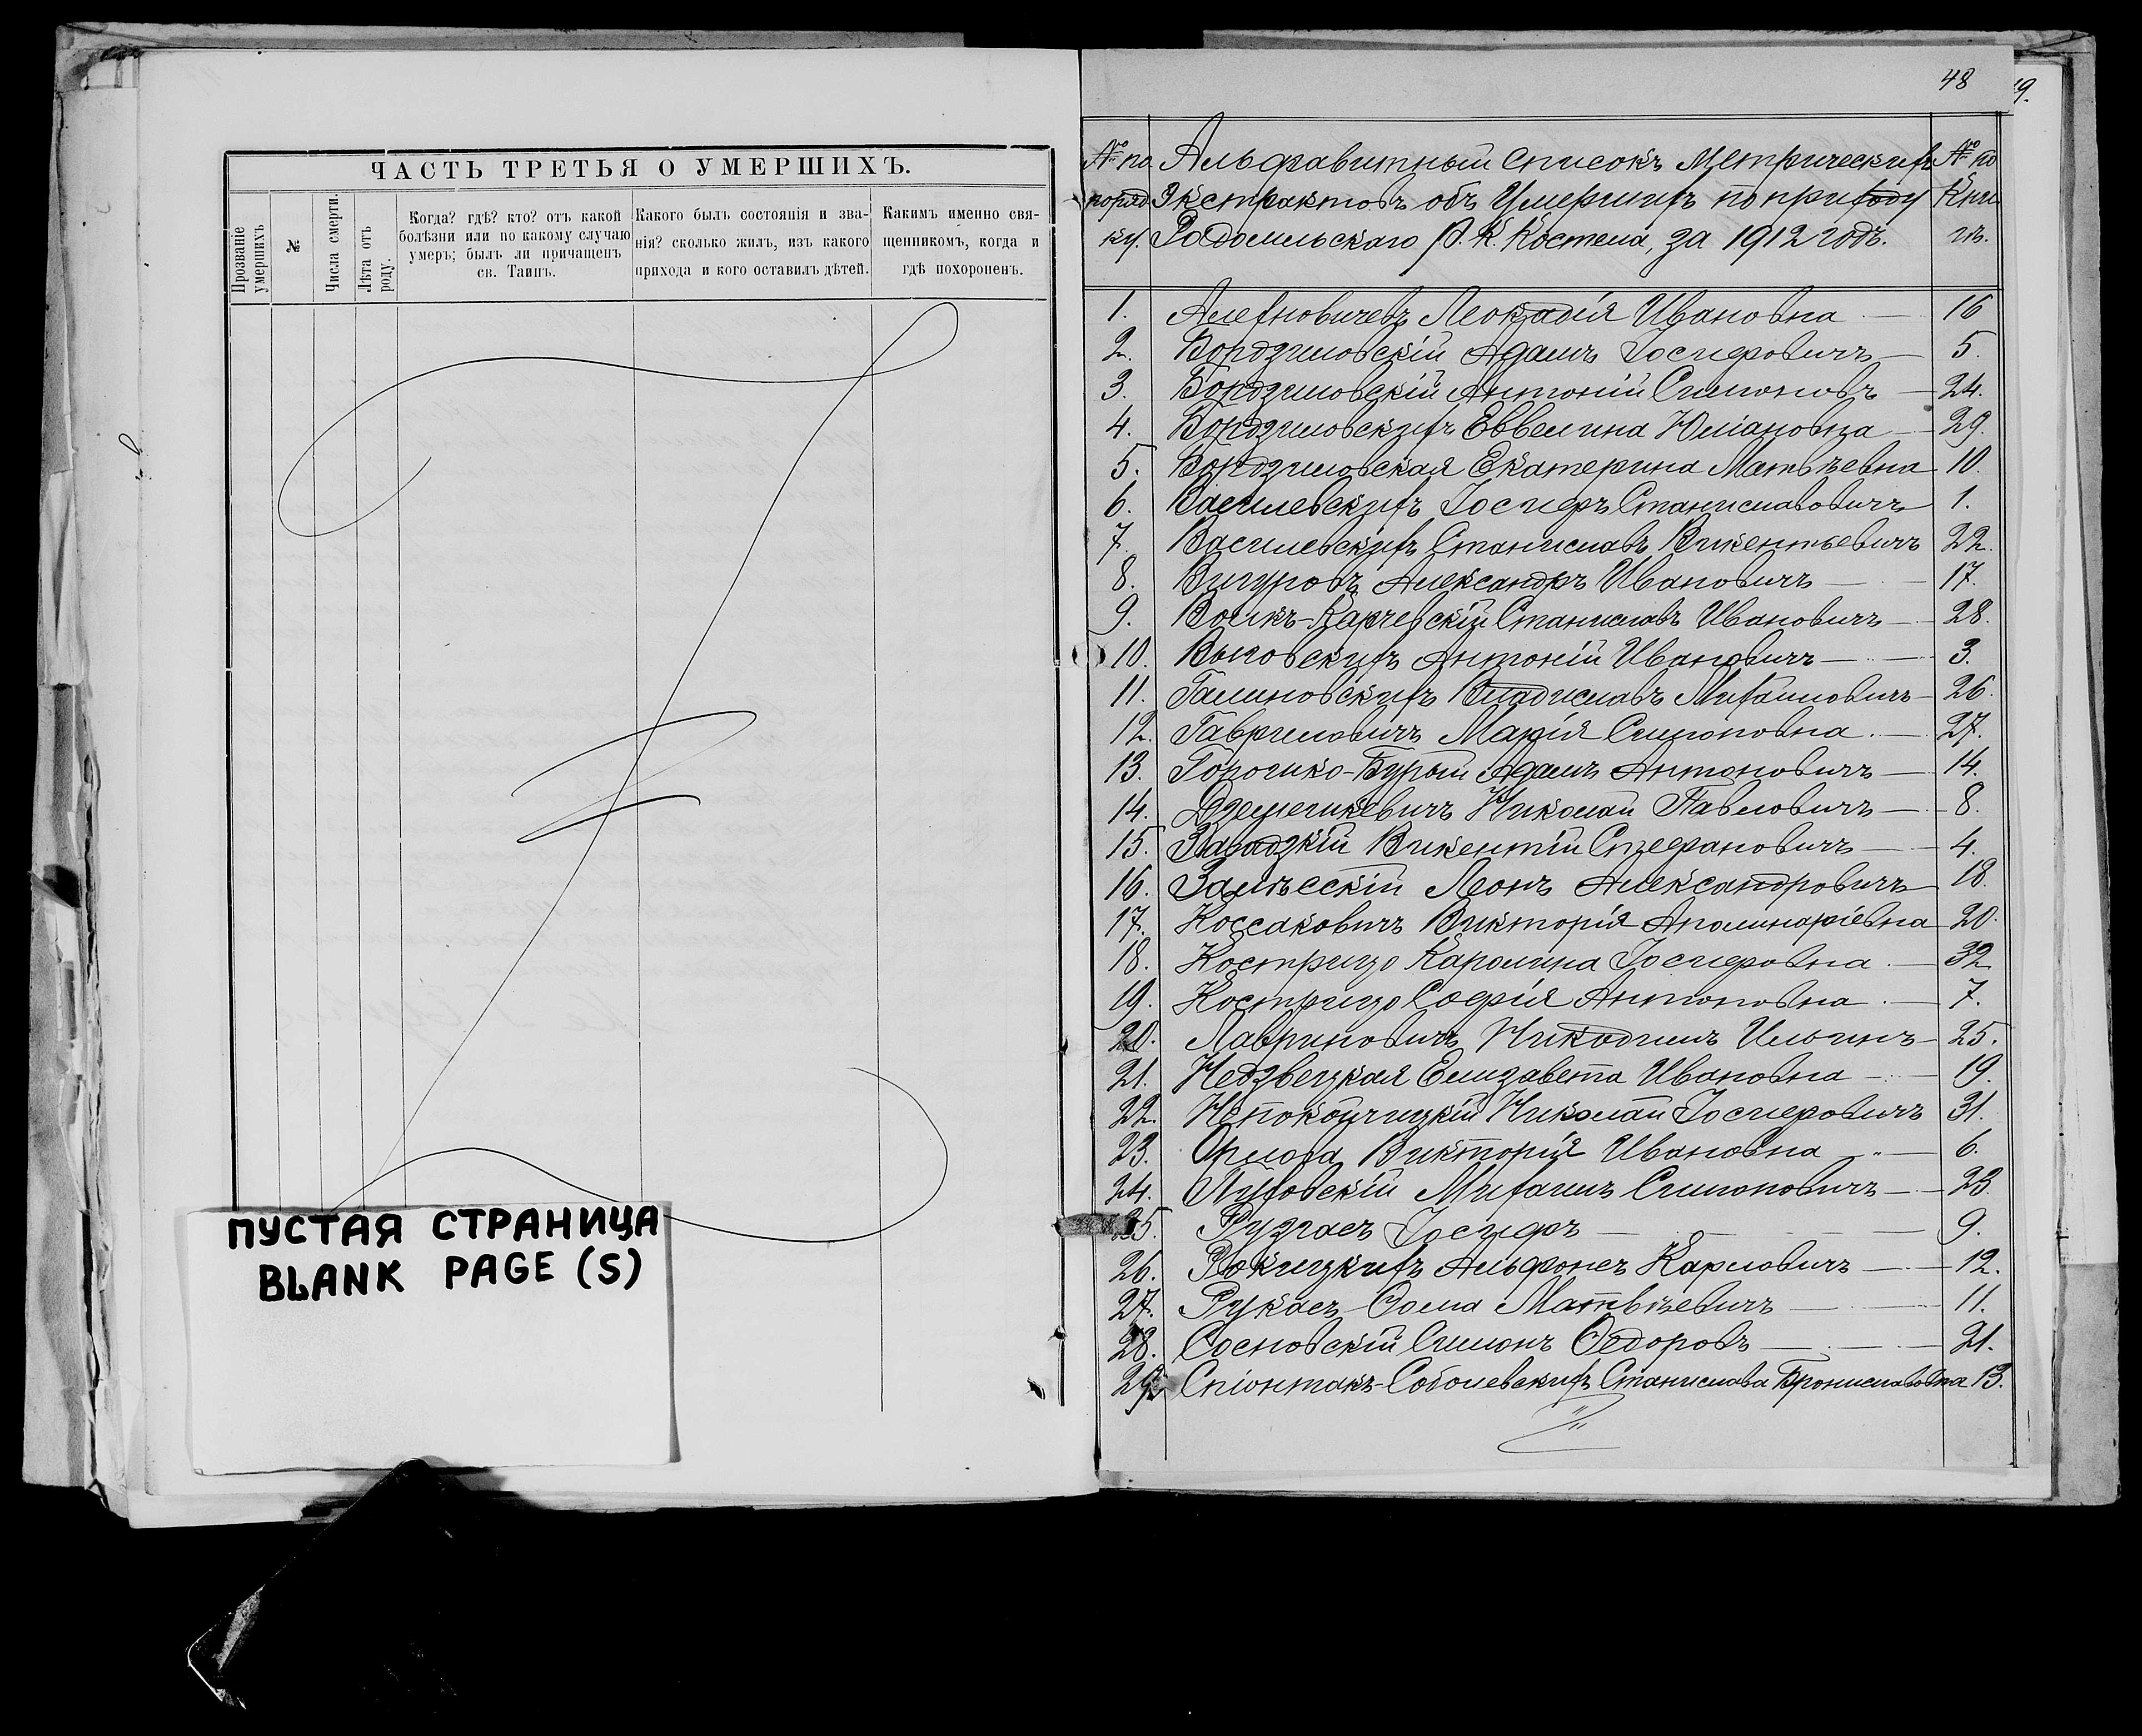 48
19.
ЧАСТЬ ТРЕТЬЯ О УМЕРШИХЪ.
Прозваніе умершихъ
№
Числа смерти.
Лѣта отъ роду.
Когда? гдѣ? кто? отъ какой
болѣзни или по какому случаю
умеръ; былъ ли причащенъ
св. Таинъ.
Какого былъ состоянія и зва-
нія? сколько жилъ, изъ какого
прихода и кого оставилъ дѣтей.
Какимъ именно свя-
щенникомъ, когда и
гдѣ похороненъ.
ПУСТАЯ СТРАНИЦА
BLANK PAGE (S)
№ по Альфавитный списокъ Метрическихъ № по
поряд Экстрактовъ объ Умершихъ по приходу Кни
ку. Радомльскаго Р. К. Костела, за 1912 годъ. гѣ.
1. Леокадія Ивановна 16
2. Бордзиловскій Адамъ Іосифовичъ 5.
3. Бордзиловскій Антоній Симоновъ 24.
4. Бордзиловскихъ Еввелина Юліановна 29.
5. Бордзиловская Екатерина Матвѣевна 10.
6. Василевскихъ Іосифъ Станиславовичъ 1.
7. Василевскихъ Станиславъ Викентьевичъ 22.
8. Вигуровъ Александръ Ивановичъ 17.
9. Волкъ-Карчевскій Станиславъ Ивановичъ 28.
10. Антоній Ивановичъ 3.
11. Галиновскихъ Владиславъ Михаиловичъ 26.
12. Гавриловичъ Марія Симоновна 27.
13. Горошко-Бурый Адамъ Антоновичъ 14.
14. Николай Павловичъ 8.
15. Викентій Стефановичъ 4.
16. Залѣсскій Леонъ Александровичъ 18.
17. Коссаковичъ Викторія Аполинаріевна 20.
18. Кострицо Каролина Іосифовна 32
19. Кострицо Софія Антоновна 7.
20. Лавриновичъ Никодимъ Ильинъ 25.
21. Недзвецкая Елизавета Ивановна 19.
22. Непокойчицкій Николай Іосифовичъ 31.
23. Орлова Викторія Ивановна 6.
24. Пуховскій Михаилъ Симоновичъ 23.
25. Іосифъ 9.
26. Рокицкихъ Альфонсъ Карловичъ 12.
27. Рукасъ Ѳома Матвѣевичъ 11.
28. Сосновскій Симонъ Ѳедоровъ 21.
29. Спіонтакъ-Соболевскихъ Станислава Брониславовна 13.